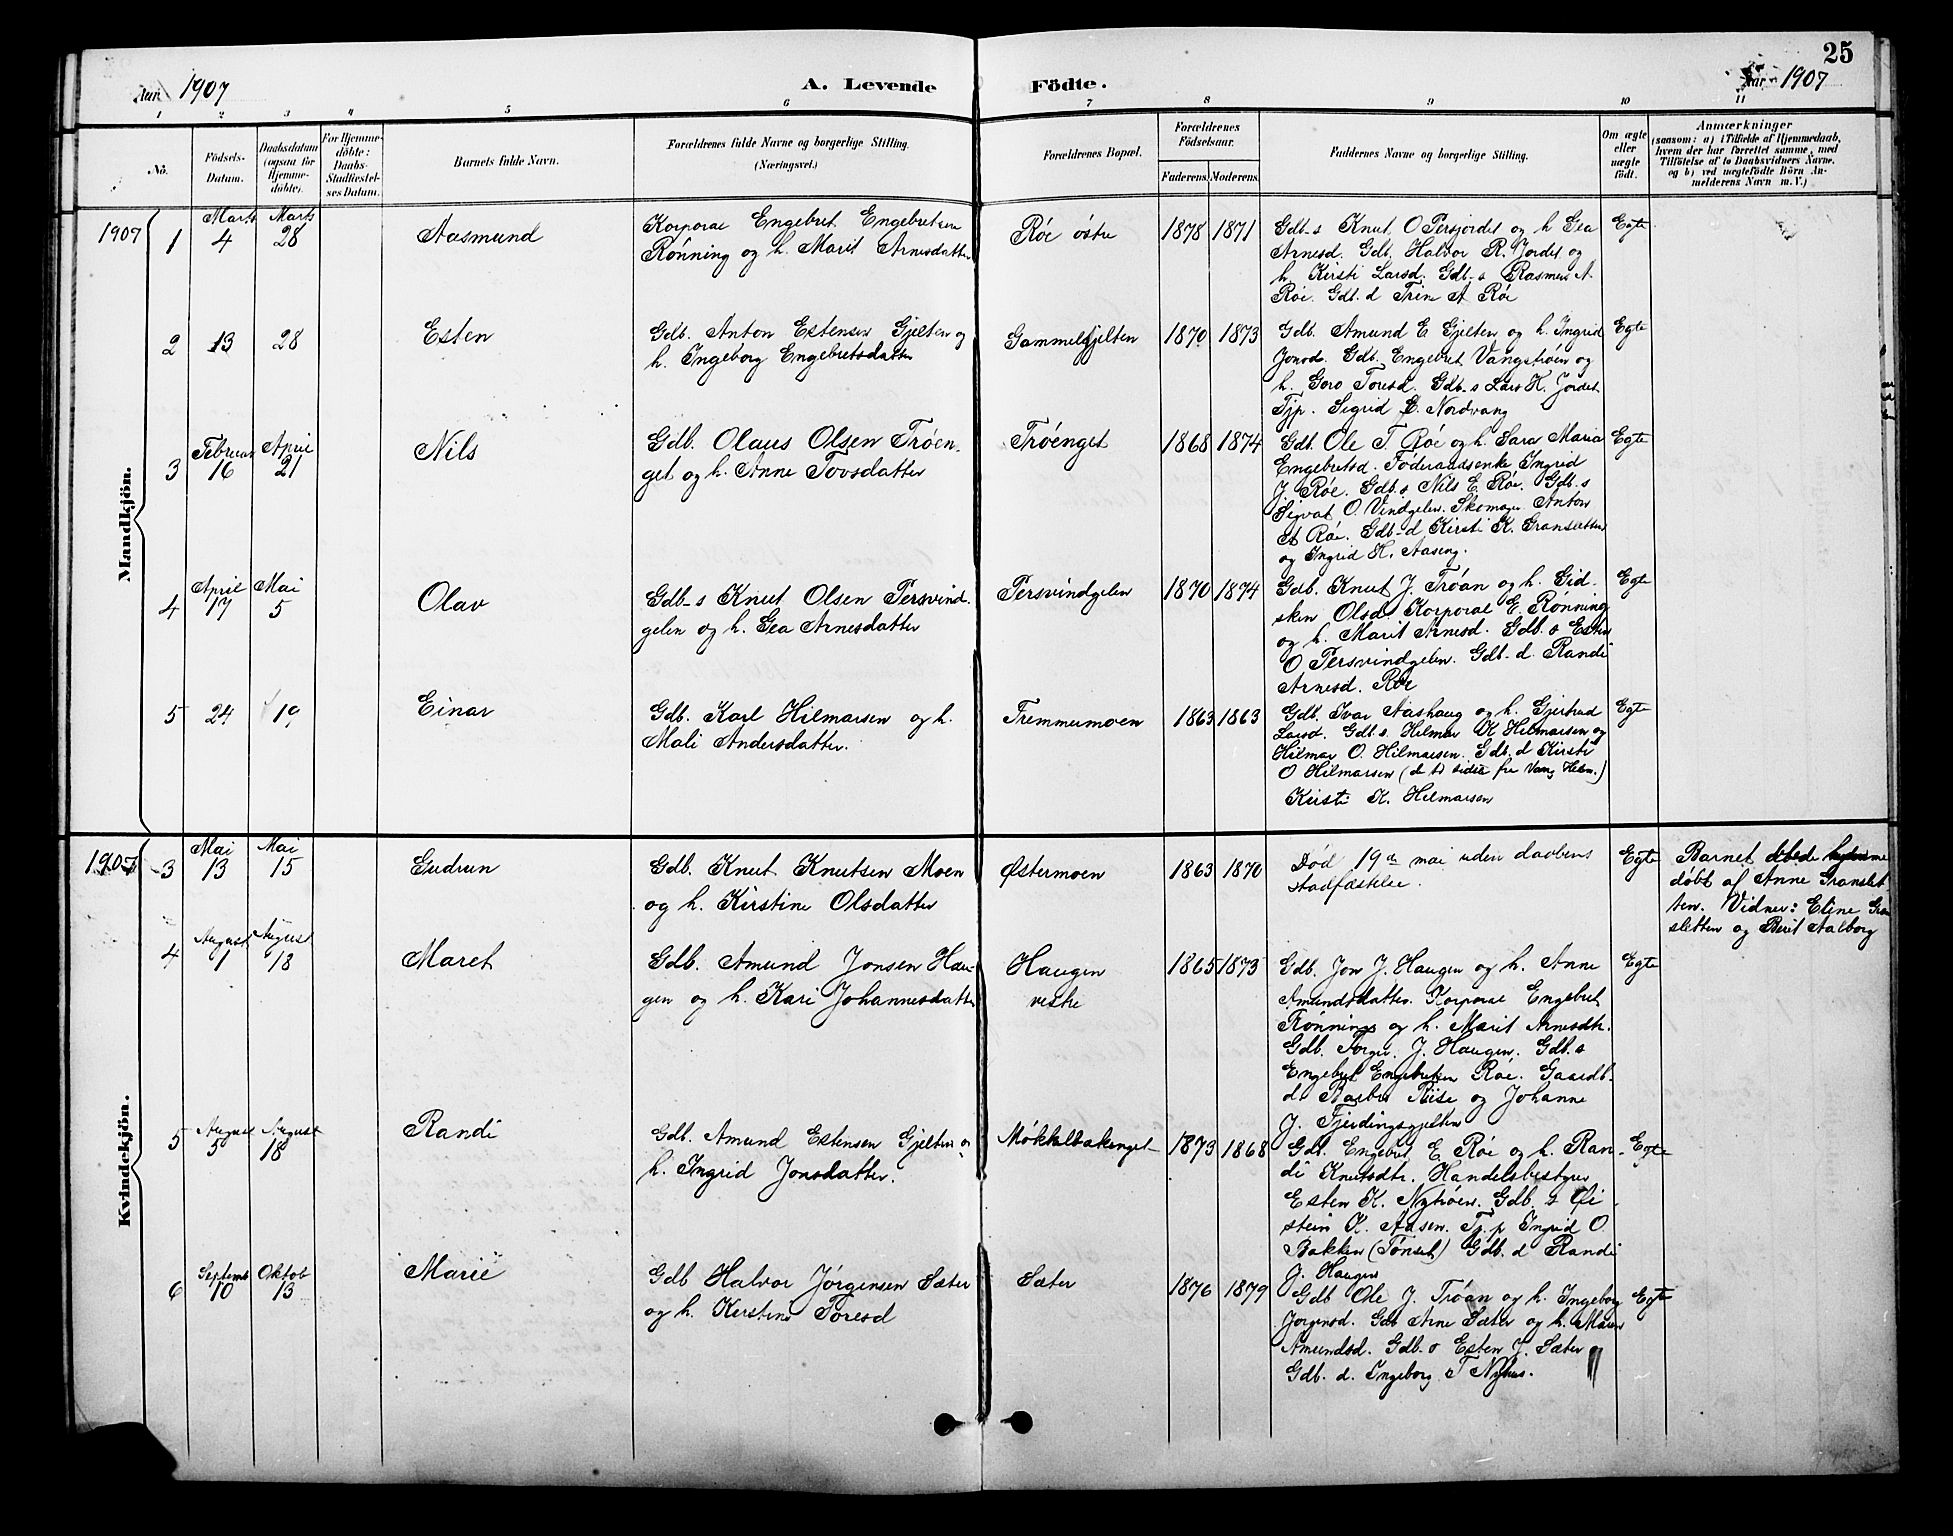 25
Aar 1907
A. Levende Födte.
Aar 1907
1 2 3 4 5 6 7 8 9 10 11
No.
Födsels-Datum.
Daabsdatum (ogsaa for Hjemme-döbte).
For Hjemme-döbte: Daabs-Stadfæstel-ses Datum.
Barnets fulde Navn.
Forældrenes fulde Navne og borgerlige Stilling. (Næringsvei.)
Forældrenes Bopæl.
Forældrenes Födselsaar.
Faderens. Moderens.
Faddernes Navne og borgerlige Stilling.
Om ægte eller uægte födt.
Anmærkninger
(saasom: a) i Tilfælde af Hjemmedaab,
hvem der har forrettet samme, med
Tilföielse af to Daabsvidners Navne.
og b) ved uægtefödte Börn An-
melderens Navn m. V.)
Mandkjön.
1907 1 Marts 4 Marts 28 Aasmund
Korporal Engebret Engebretsen
Rønning og h. Marit Arnesdatter
Røe østre 1878 1871
Gdb-s Knut O Persjordet og h Gea
Arnesd. Gdb. Halvor R. Jordet og
h. Kirsti Larsd. Gdb-s Rasmus A.
Røe. Gdb. d Trine A Røe
Egte
2 13 28 Esten
Gdb. Anton Estensen Gjelten og
h. Ingeborg Engebretsdatter
Gammelgjelten 1870 1873
Gdb. Amund E Gjelten og h. Ingrid
Jonsd. Gdb. Engebret Vangstrøen og
h. Goro Toresd. Gdb-s Lars K. Jordet
Tjp. Sigrid E. Nordvang
Egte
3 Februar 16 April 21 Nils
Gdb. Olaus Olsen Trøen-
get og h. Anne Tovsdatter
Trøenget 1868 1874
Gdb. Ole T Røe og h. Sara Maria
Engebretsd. Føderaadsenke Ingrid
J. Røe. Gdb. s Nils E. Røe. Gdb. s
Sigvat O. Vindgelen. Skomager Anton
A Røe. Gdb-d Kirsti K. Gransletten
og Ingrid H. Aaseng.
Egte
4 April 17 Mai 5 Olav
Gdb-s Knut Olsen Persvind-
gelen og h. Gea Arnesdatter
Persvindgelen 1870 1874
Gdb. Knut J. Trøan og h. Gid-
sken Olsd. Korporal E. Rønning
og h. Marit Arnesd. Gdb. s Esten
O Persvindgelen. Gdb-d. Randi
Arnesd. Røe
Egte
5 24 19 Einar
Gdb. Karl Hilmarsen og h.
Mali Andersdatter.
Tremmumoen 1863 1863
Gdb. Ivar Aashaug og h. Gjertrud
Larsd. Gdb. s. Hilmar K Hilmarsen og
Hilmar O. Hilmarsen. Gdb. d Kirsti
O Hilmarsen (de to sidste fra Vang Hedm.)
Kirsti K. Hilmarsen
Egte
Kvindekjön.
1907 3 Mai 13 Mai 15 Gudrun
Gdb. Knut Knutsen Moen
og h. Kirstine Olsdatter
Østermoen 1863 1870
Død 19de mai uden daabens
stadfæstelse.
Egte
Barnet hjemme
døbt af Anne Granslet
ten. Vidner: Eline Gran
sletten og Berit Aalborg
4 August 1 August 18 Maret
Gdb. Amund Jonsen Hau-
gen og h. Kari Johannesdatter
Haugen
vestre
1865 1873
Gdb. Jon J. Haugen og h. Anne
Amundsdatter. Korporal Engebret
Rønning og h. Marit Arnesdtr.
Gdb. Torger J. Haugen. Gdb. s
Engebret Engebretsen Røe. Gaardb.
d. Barbro Riise og Johanne
J. Fjerdingsgjelten
Egte
5 August 5 August 18 Randi
Gdb. Amund Estensen Gjelten og
h. Ingrid Jonsdatter.
Møkkelbakenget 1873 1868
Gdb. Engebret E. Røe og h. Ran-
di Knutsdtr. Handelsbestyrer
Esten K. Nytrøen. Gdb. s Øi-
stein K. Aasen. Tj. p Ingrid O
Bakken (Tønset) Gdb. d Randi
J. Haugen
Egte
6 Septemb 10 Oktob 13 Marie
Gdb Halvor Jørgensen Sæter
og h. Kerstine Toresd
Sæter 1876 1879
Gdb Ole J. Trøan og h. Ingeborg
Jørgensd. Gdb Arne Sæter og h. Maren
Amundsd. Gdb-s Esten J. Sæter og
Gdb. d. Ingeborg T Nyhus.
Egte